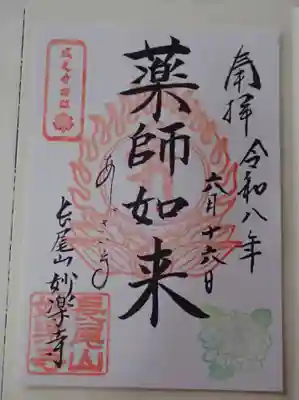 奉拝
令和八年
六月十六日
薬師如来
あじさい寺
長尾山 妙楽寺
長尾山
妙楽寺